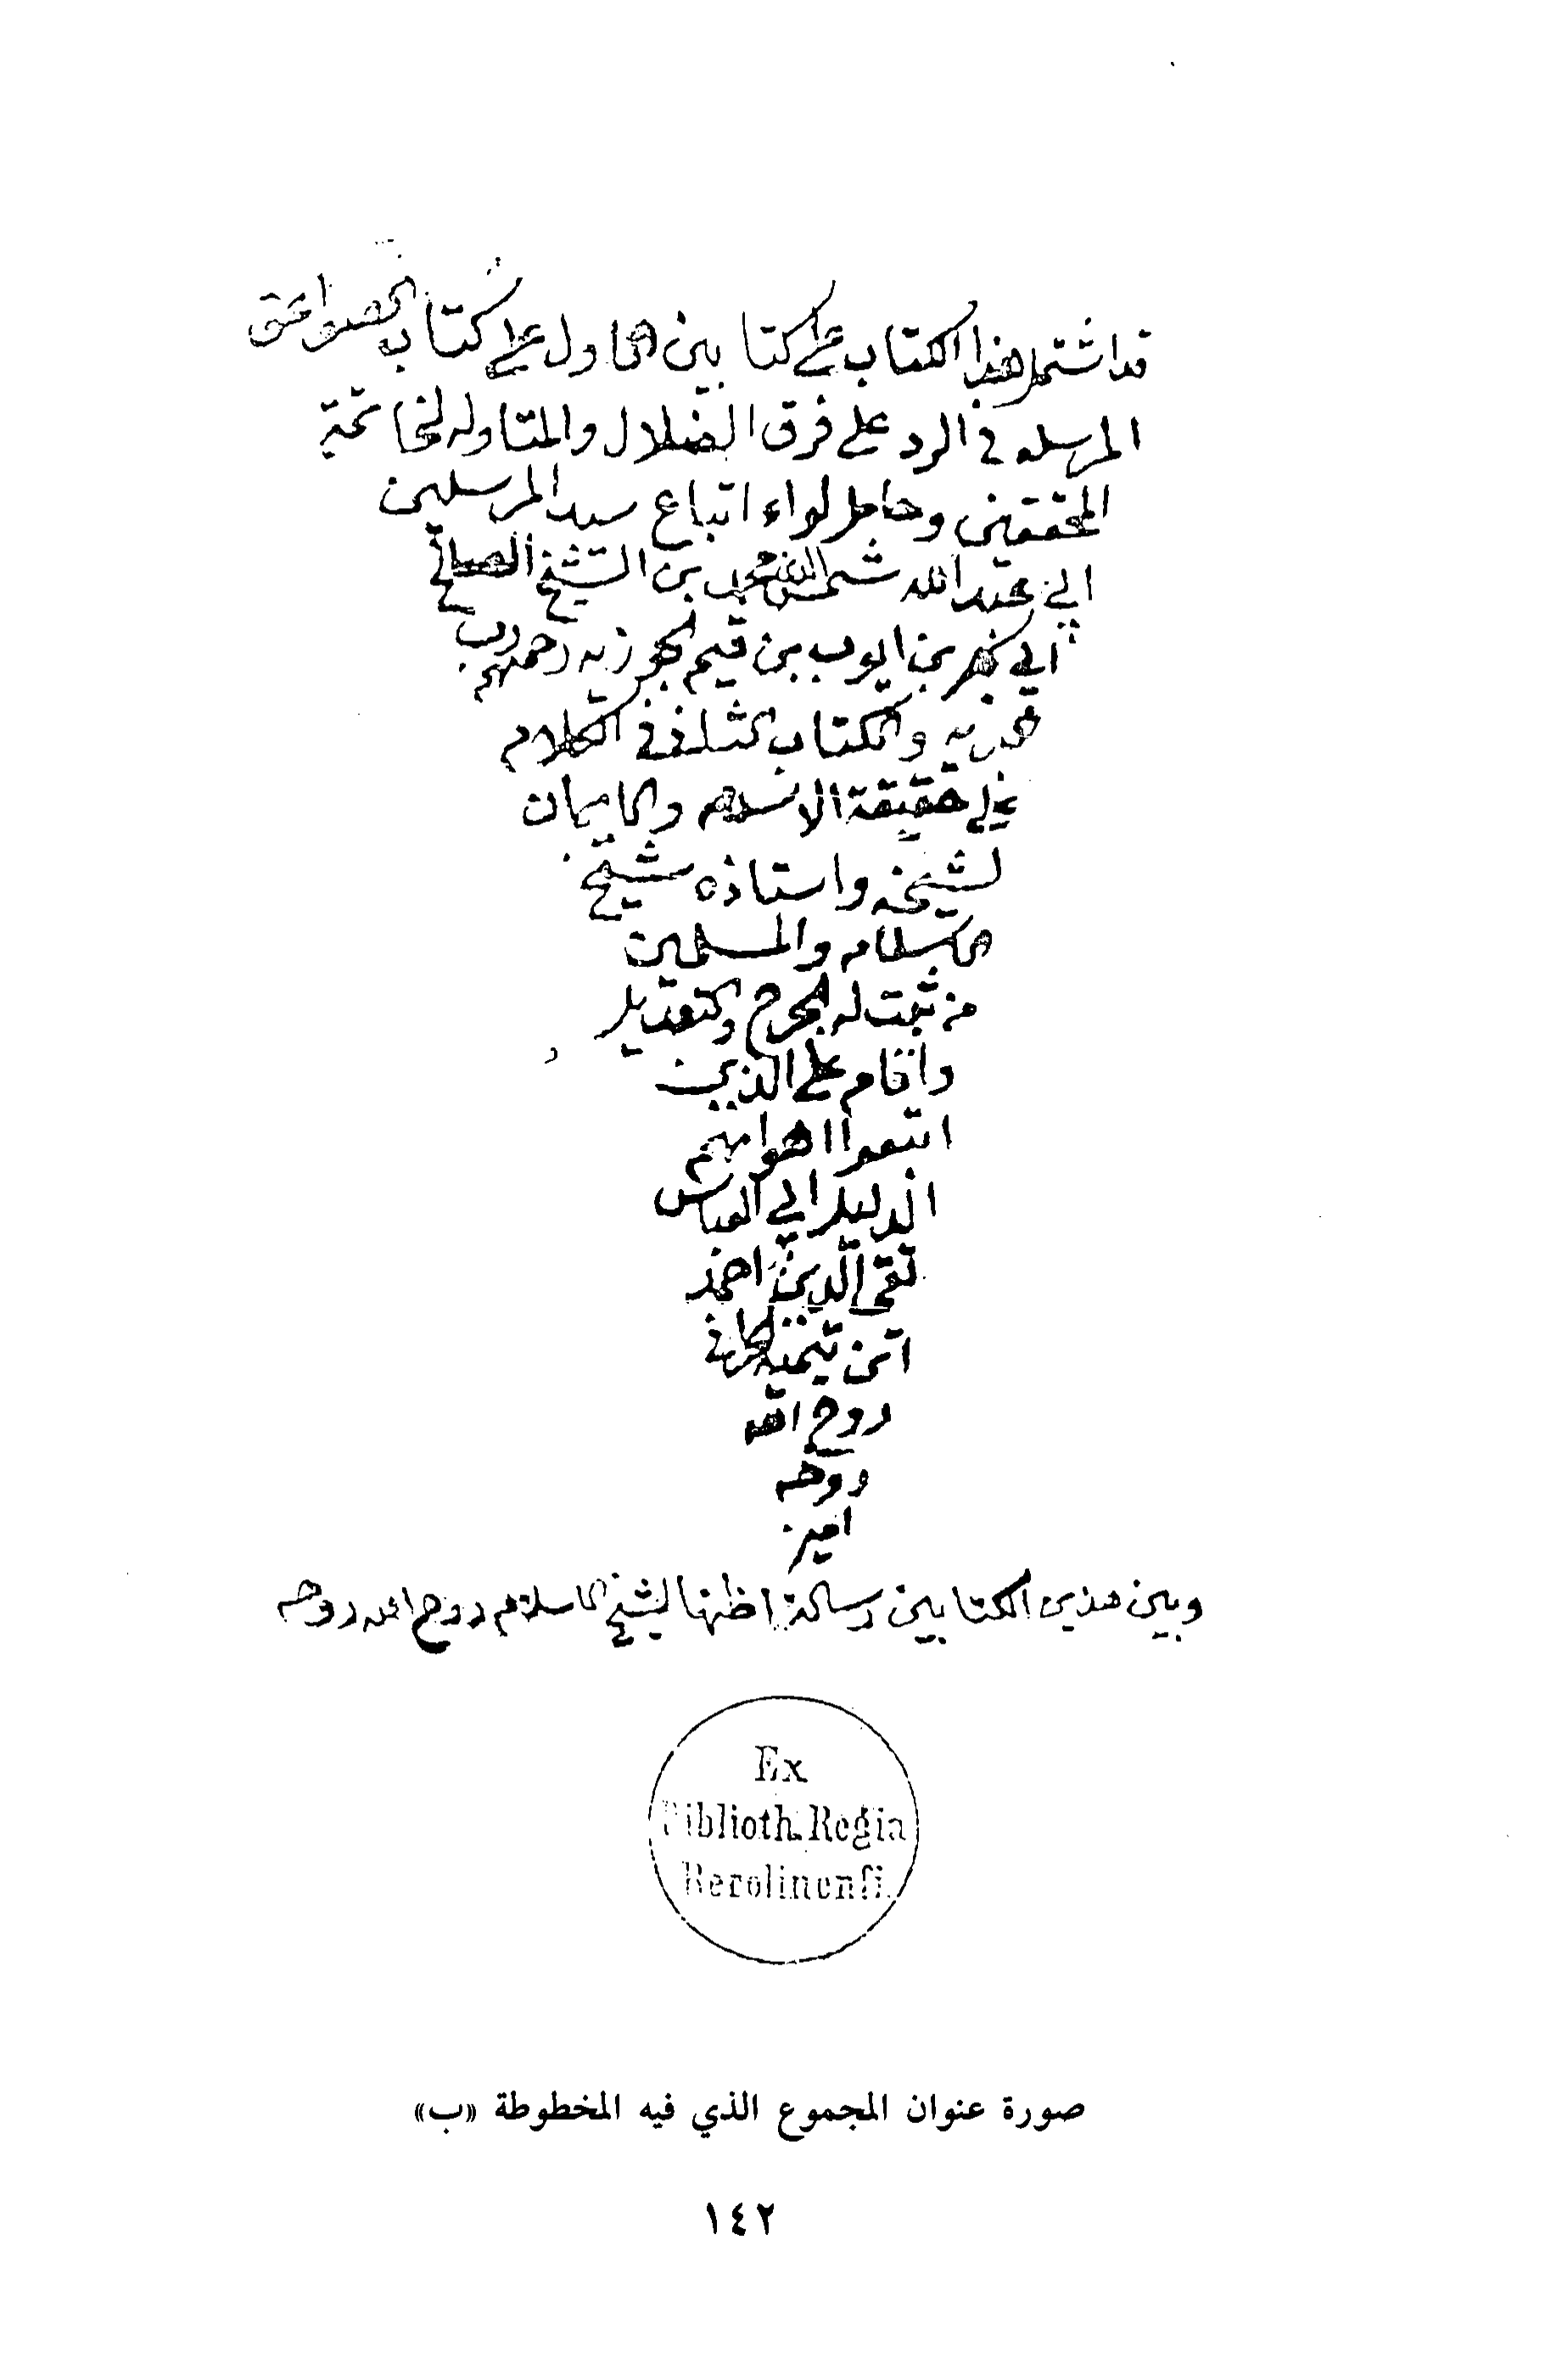 قد اشتمل هذا الكتاب على كتابين الاول على كتاب الصواعق
المرسله في الرد على فرق الضلال والمتاوله لخاتمة
المحققين وحامل لواء اتباع سيد المرسلين
ابي عبد الله شمس الدين محمد بن الشيخ الصالح
ابي بكر بن ايوب بن قيم الجوزيه رحمهم رب
البريه والكتاب الثاني في الكلام
على حقيقة الاسلام والايمان
لشيخه واستاذه شيخ
الاسلام والمسلمين
من ثبت له الجرح والتعديل
واقام على الذين
اتبعوا اهوائهم
الدليل ابي العباس
تقي الدين احمد
ابن تيمية الحراني
روح الله
روحه
امين
وبين هذين الكتابين رسالة اظنها لشيخ الاسلام روح الله روحه
Ex
Biblioth. Regia
Berolinenſi.
صورة عنوان المجموع الذي فيه المخطوطة «ب»
١٤٢